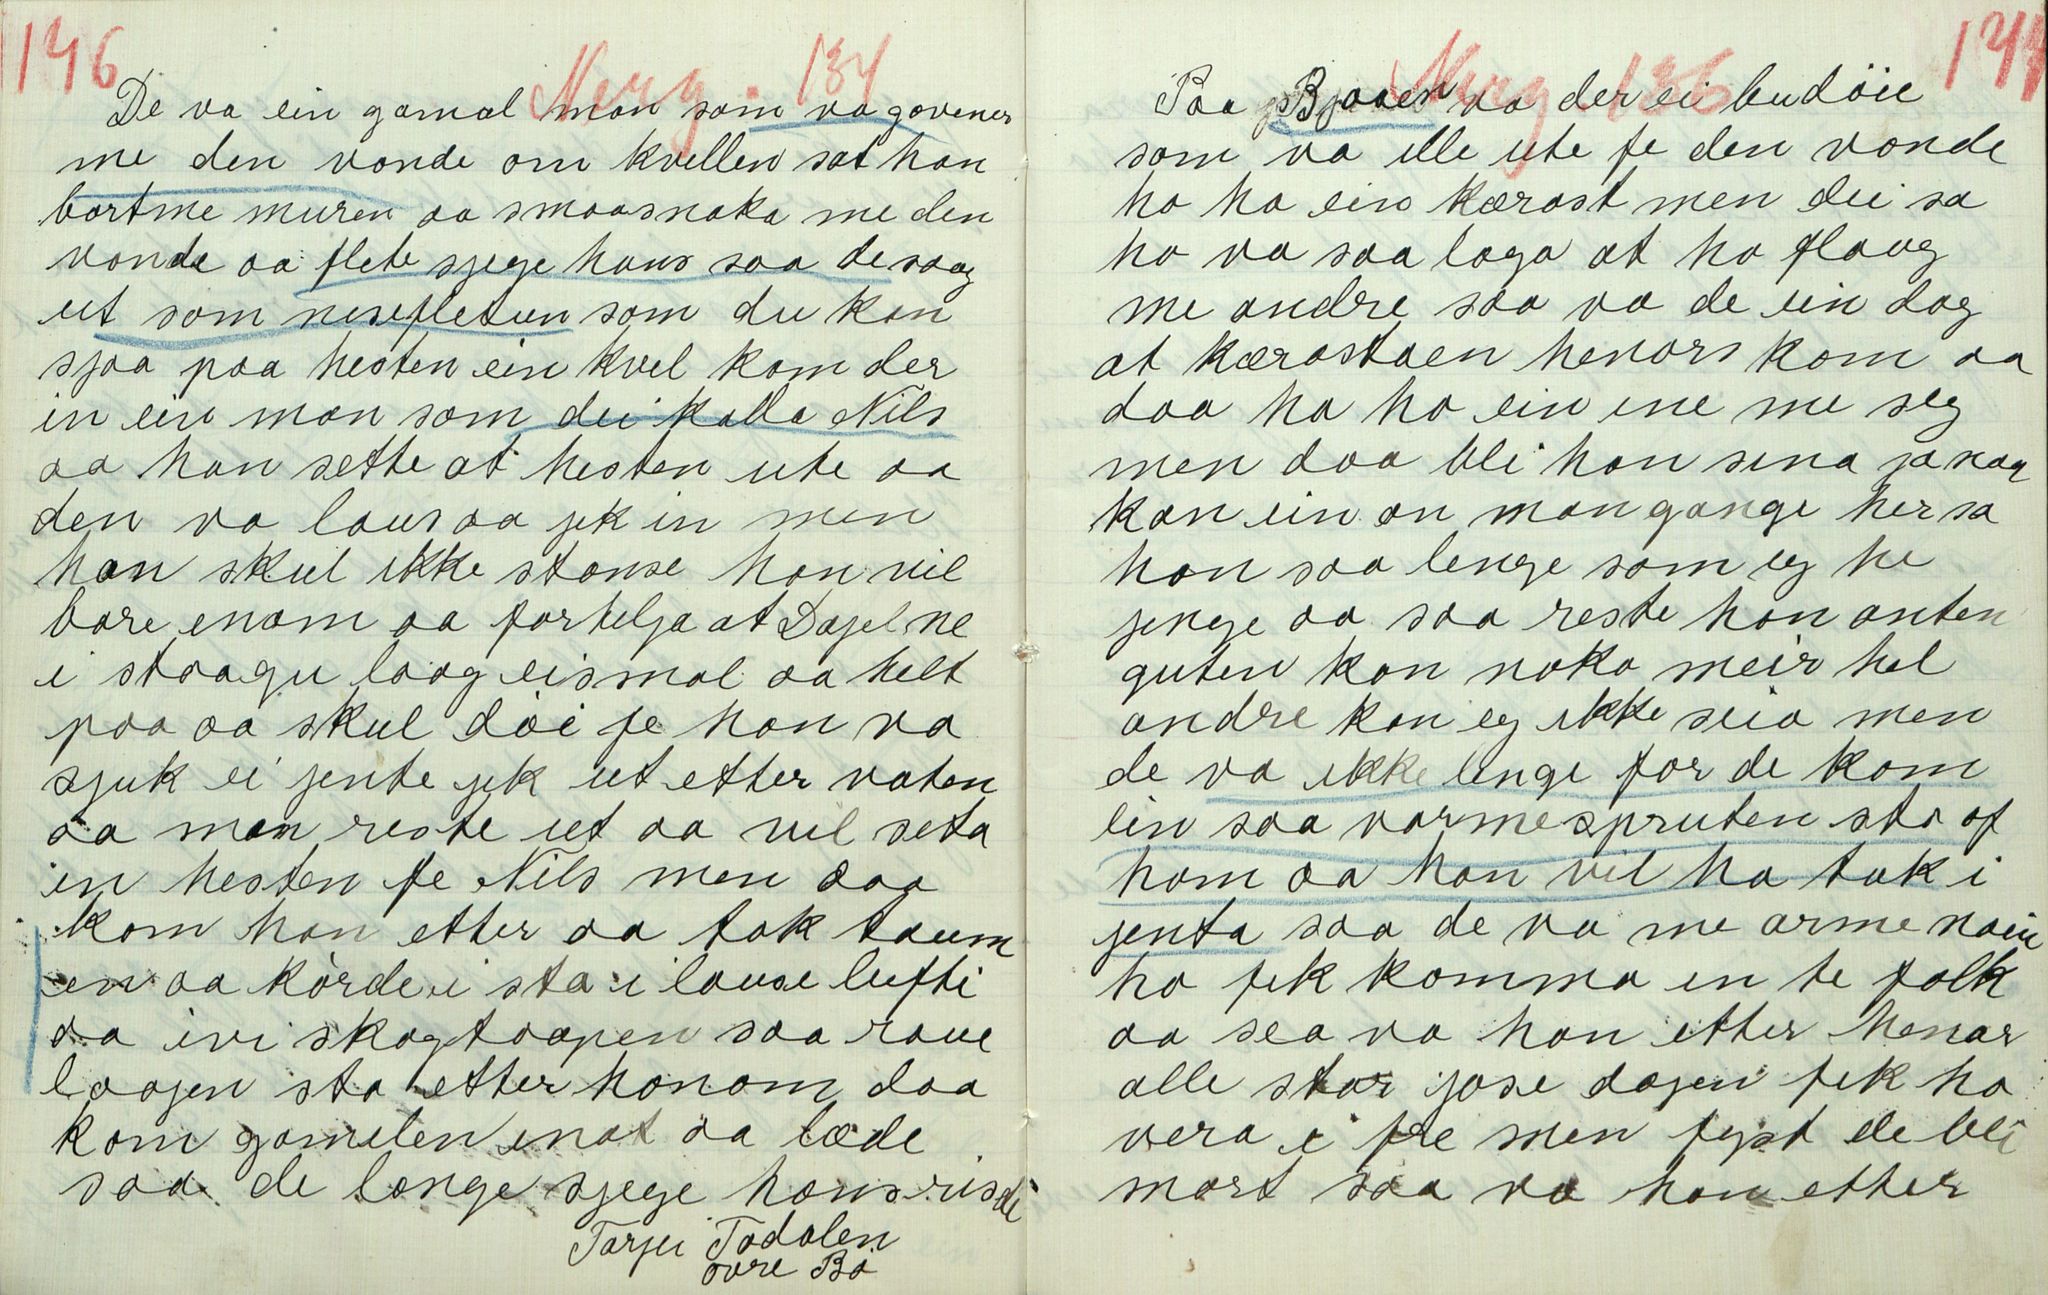 146
Nerg. 134
De va ein gamal man som va govener
me den vonde om kvellen sat han
bortme muren aa smaasnaka me den
vonde aa flete sjege hans saa de saag
ut som nisefletun som du kan
sjaa paa hesten ein kvel kom der
in ein man som dei kalla Nils
aa han sette at hesten ute aa
den va laus aa jek in men
han skul ikke stanse han vil
bare enom aa fortelja at Dajel ne
i staagu laag eismal aa helt
paa aa skul döi fe han va
sjuk ei jente jek ut etter vaten
aa man reste ut aa vil seta
in hesten fe Nils men daa
kom han etter aa tok taum
en aa körde i sta i lause lufti
aa ivi skogtoapen saa raue
laajen sto etter honom daa
kom gamelen inat aa læde
saa de lange sjege hans risde
Tarjei Todalen
övre Bö
147
Nerg 136
Paa Bjaaen va der ei budöie
som va ille ute fe den vonde
ho ha ein kærast men dei sa
ho va saa laga at ho flaug
me andre saa va de ein dag
at kærastaen henars kom aa
daa ha ho ein ene me seg
men daa bli han sina ja naar
kan ein an man gange her sa
han saa lenge som eg he
jenge aa saa reste han anten
guten kan noko meir hel
andre kan eg ikke seia men
de va ikke lenge for de kom
ein saa varmespruten sto af
hom aa han vil ha tak i
jenta saa de va me arme naue
ho fek komma in te folk
aa sea va han etter henar
alle star jase dagen fek ho
vera i fre men fyst de bli
mort saa va han etter